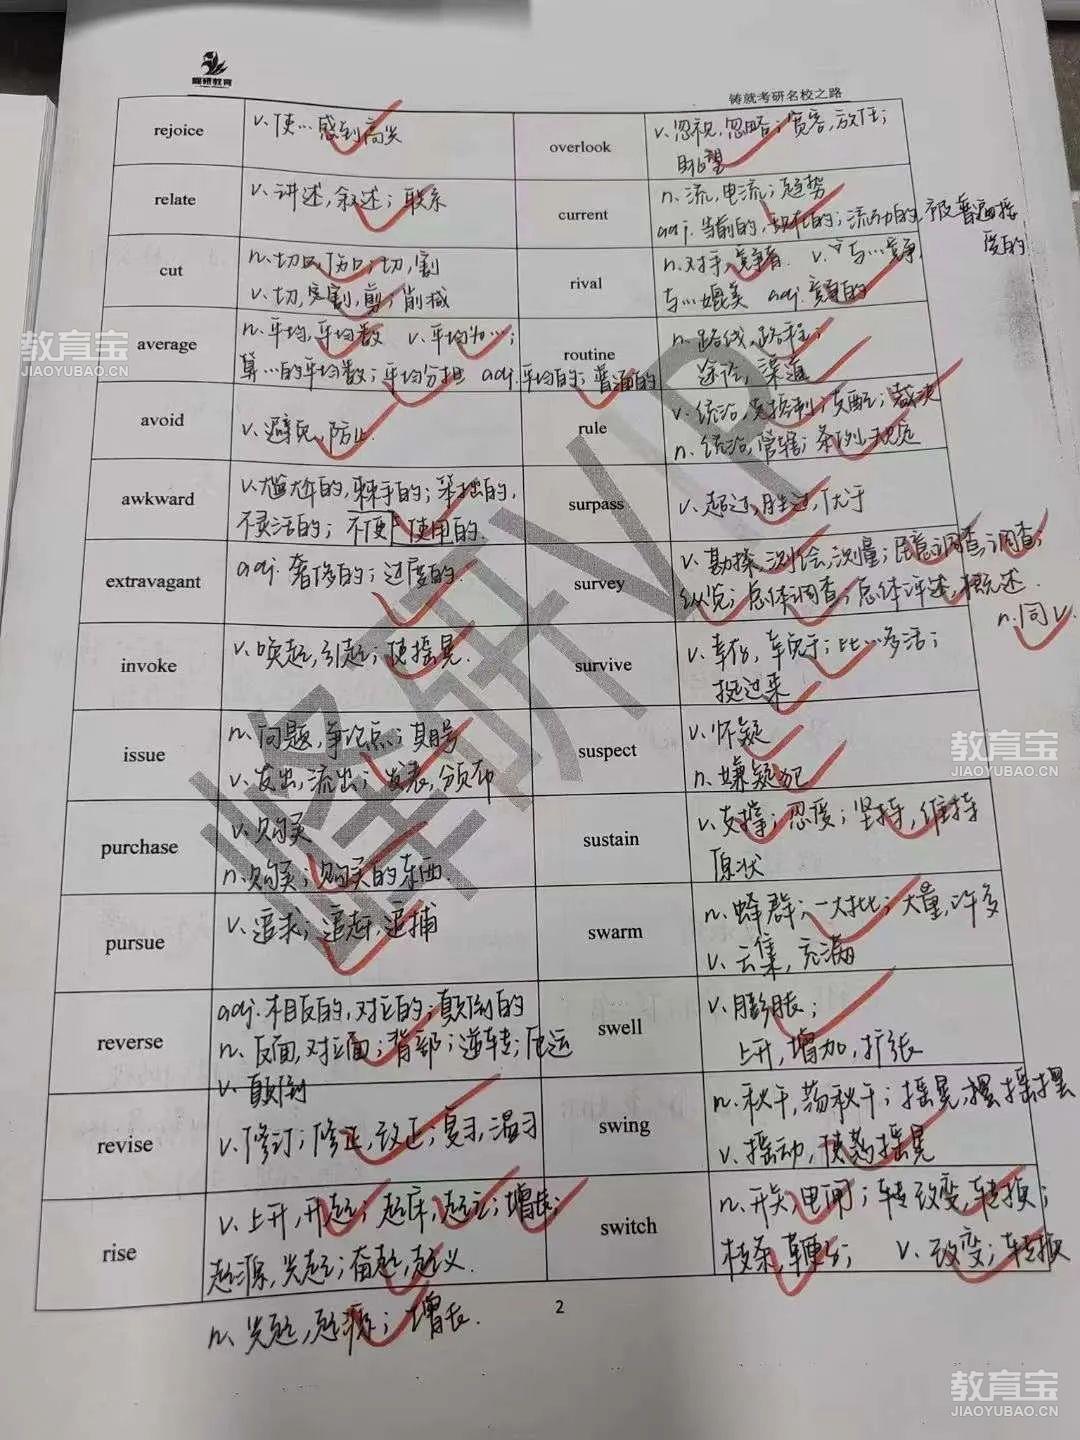 峰研教育
铸就考研名校之路
rejoice
v. 使…感到高兴
overlook
v. 忽视, 忽略; 宽容, 放任;
眺望
relate
v. 讲述, 叙述; 联系
current
n. 流, 电流; 趋势
adj. 当前的, 现在的; 流动的, 被普遍接
受的
cut
n. 切口, 伤口; 切, 割
v. 切, 割, 剪; 削减
rival
n. 对手, 竞争者. v. 与…竞争,
与…媲美 adj. 竞争的
average
n. 平均, 平均数 v. 平均为…;
算…的平均数; 平均分担 adj. 平均的; 普通的
routine
n. 路线, 路程;
途径, 渠道
avoid
v. 避免, 防止.
rule
v. 统治, 控制; 支配; 裁决
n. 统治, 管辖; 条例, 规定
awkward
v. 尴尬的, 棘手的; 笨拙的,
不灵活的; 不便使用的.
surpass
v. 超过, 胜过, 优于
extravagant
adj. 奢侈的; 过度的.
survey
v. 勘探, 测绘, 测量; 民意调查; 调查;
纵览; 总体调查; 总体评述, 概述.
n. 同v.
invoke
v. 唤起, 引起; 使摇晃.
survive
v. 幸存, 幸免于; 比…多活;
挺过来
issue
n. 问题, 争论点; 期号
v. 发出, 流出; 发表, 颁布
suspect
v. 怀疑
n. 嫌疑犯
purchase
v. 购买
n. 购买; 购买的东西.
sustain
v. 支撑; 忍受; 坚持, 维持
原状
pursue
v. 追求; 追赶, 追捕
swarm
n. 蜂群; 一大批; 大量, 许多
v. 云集, 充满
reverse
adj. 相反的, 对应的; 颠倒的
n. 反面, 对立面; 背部; 逆转; 厄运
v. 颠倒
swell
v. 膨胀;
上升, 增加, 扩张
revise
v. 修订; 修正, 改正; 复习, 温习
swing
n. 秋千, 荡秋千; 摇晃, 摆 摇摆
v. 摇动, 使 摇晃
rise
v. 上升, 升起; 起床, 起立; 增长;
起源, 兴起; 奋起, 起义.
switch
n. 开关, 电闸; 转 改变, 转换;
枝条, 鞭子; v. 改变; 转换
n. 兴起, 起源; 增长.
2
峰研VIP
教育宝
JIAOYUBAO.CN
教育宝
JIAOYUBAO.CN
教育宝
JIAOYUBAO.CN